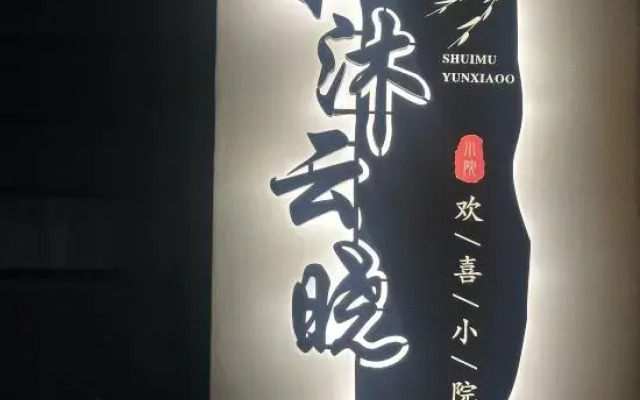 沐云晓
SHUIMU
YUNXIAOO
小院
欢/喜/小/院